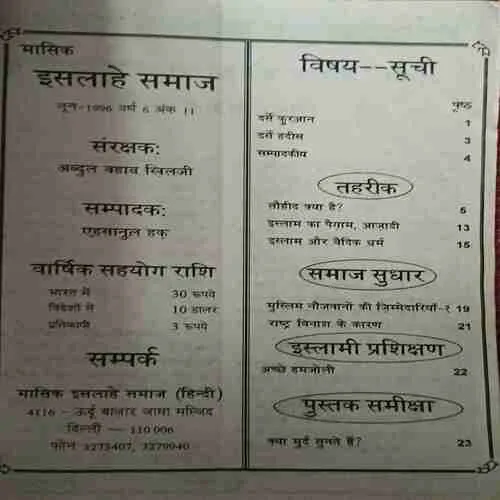 मासिक
इसलाहे समाज
जून-1996 वर्ष 6 अंक 11
संरक्षक:
अब्दुल वहाव खिलजी
सम्पादक:
एहसानुल हक
वार्षिक सहयोग राशि
भारत में 30 रूपये
विदेशों में 10 डालर
प्रतिकापी 3 रूपये
सम्पर्क
मासिक इसलाहे समाज (हिन्दी)
4116 - ऊर्दू बाजार जामा मस्जिद
दिल्ली - 110 006
फोन 3273407, 3279040
विषय--सूची
पृष्ठ
दर्से कुरआन 1
दर्से हदीस 3
सम्पादकीय 4
तहरीक
तौहीद क्या है? 5
इस्लाम का पैग़ाम, आज़ादी 13
इस्लाम और वैदिक धर्म 15
समाज सुधार
मुस्लिम नौजवानों की ज़िम्मेदारियाँ-२ 19
राष्ट्र विनाश के कारण 21
इस्लामी प्रशिक्षण
अच्छे हमजोली 22
पुस्तक समीक्षा
क्या मुर्दे सुनते हैं? 23